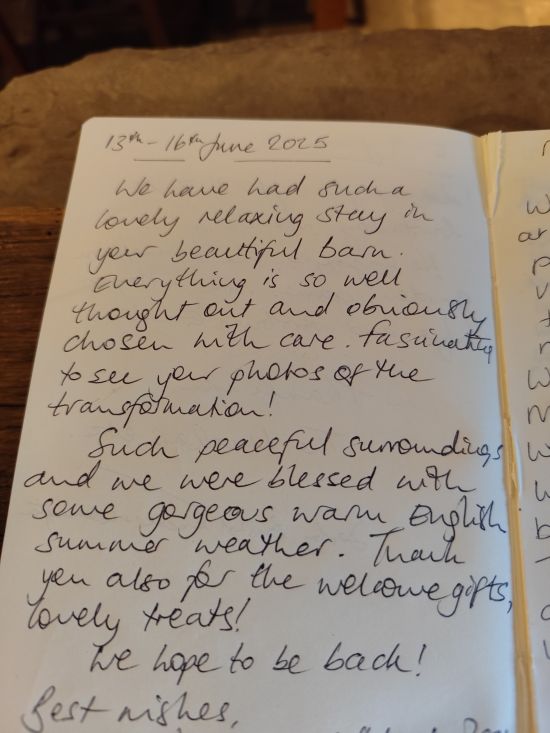 13th - 16th June 2025
We have had such a
lovely relaxing stay in
your beautiful barn.
Everything is so well
thought out and obviously
chosen with care. Fascinating
to see your photos of the
transformation!
Such peaceful surroundings
and we were blessed with
some gorgeous warm English
summer weather. Thank
you also for the welcome gifts,
lovely treats!
We hope to be back!
Best wishes,